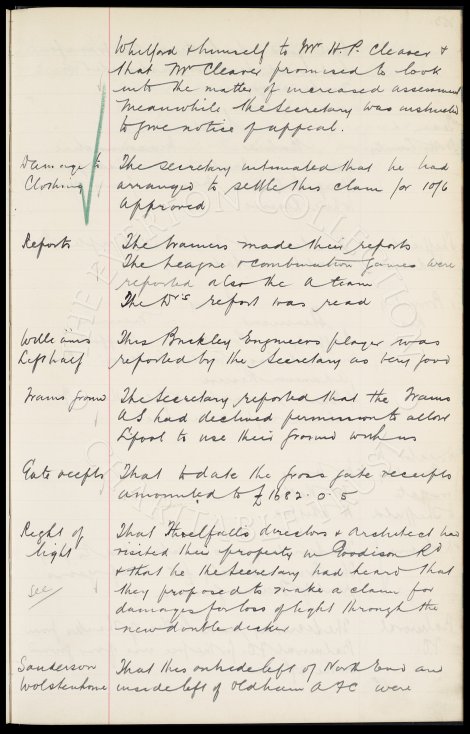 Whitford & himself to Mr H. P. Cleaver &
that Mr Cleaver promised to look
into the matter of increased assessment
Meanwhile the Secretary was instructed
to give notice of appeal.
Damage to Clothing
The Secretary intimated that he had
arranged to settle this claim for 10/6
Approved
Reports
The trainers made their reports
The League & combination games were
reported also the A team
The Dr's report was read
Williams
Left half
This Buckley Engineers player was
reported by the Secretary as very good
Trams ground
The Secretary reported that the Trams
A.S had declined permission to allow
L'pool to use their ground with us
Gate receipts
That to date the gross gate receipts
amounted to £1682.0.5
Right of
light
see
That Threlfalls directors & Architect had
visited their property in Goodison Rd
& that he the Secretary had heard that
they proposed to make a claim for
damages for loss of light through the
new double decker
Sanderson
Wolstenholme
That this outside left of North End and
inside left of Oldham A F C were
THE EVERTON COLLECTION
CHARITABLE TRUST